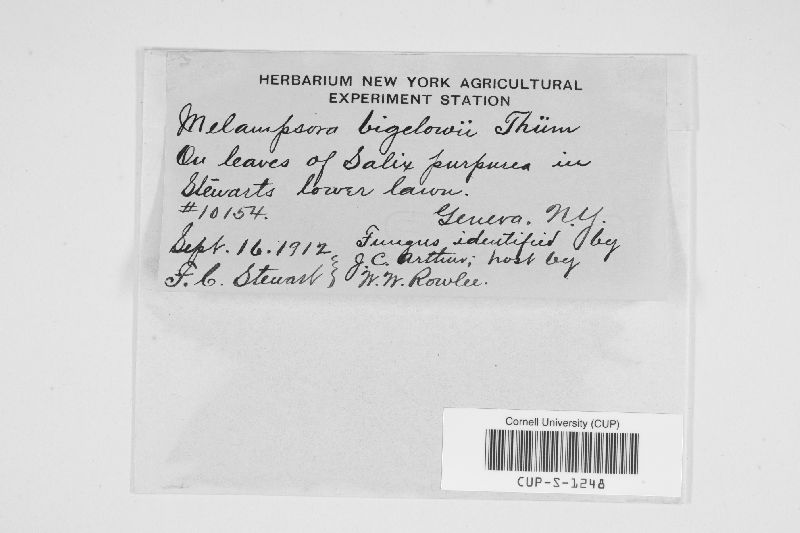 HERBARIUM NEW YORK AGRICULTURAL
EXPERIMENT STATION
Melampsora bigelowii Thüm
On leaves of Salix purpurea in
Stewarts lower lawn.
#10154. Geneva. N.Y.
Sept. 16. 1912. Fungus identified by
J.C. Arthur; host by
F. C. Stewart W.W. Rowlee.
Cornell University (CUP)
CUP-S-1248